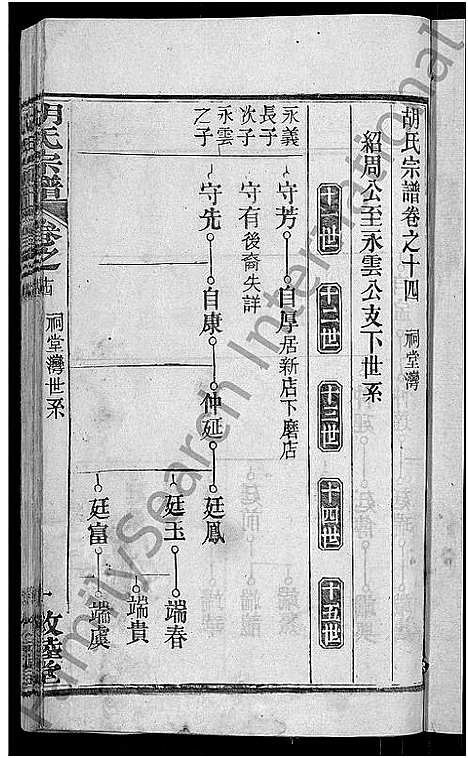 胡氏宗譜卷之十四 祠堂灣
紹周公至永雲公支下世系
十一世 十二世 十三世 十四世 十五世
永義長子 守芳 自厚居新店下磨店
次子 守有後裔失詳
永雲之子 守先 自康 仲延 廷鳳
廷玉 端春
端貴
廷富 端虞
胡氏宗譜 卷之十四 祠堂灣世系 一 敦睦堂
FamilySearch International